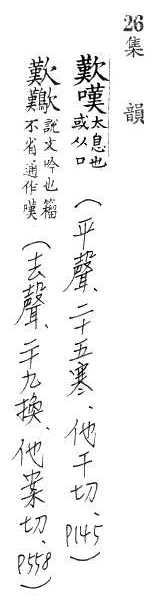 26
集韻
歎嘆 太息也或从口 (平聲、二十五寒、他干切、P145)
歎𪄿 說文吟也籀不省通作嘆 (去聲、二十九換、他案切、P558)